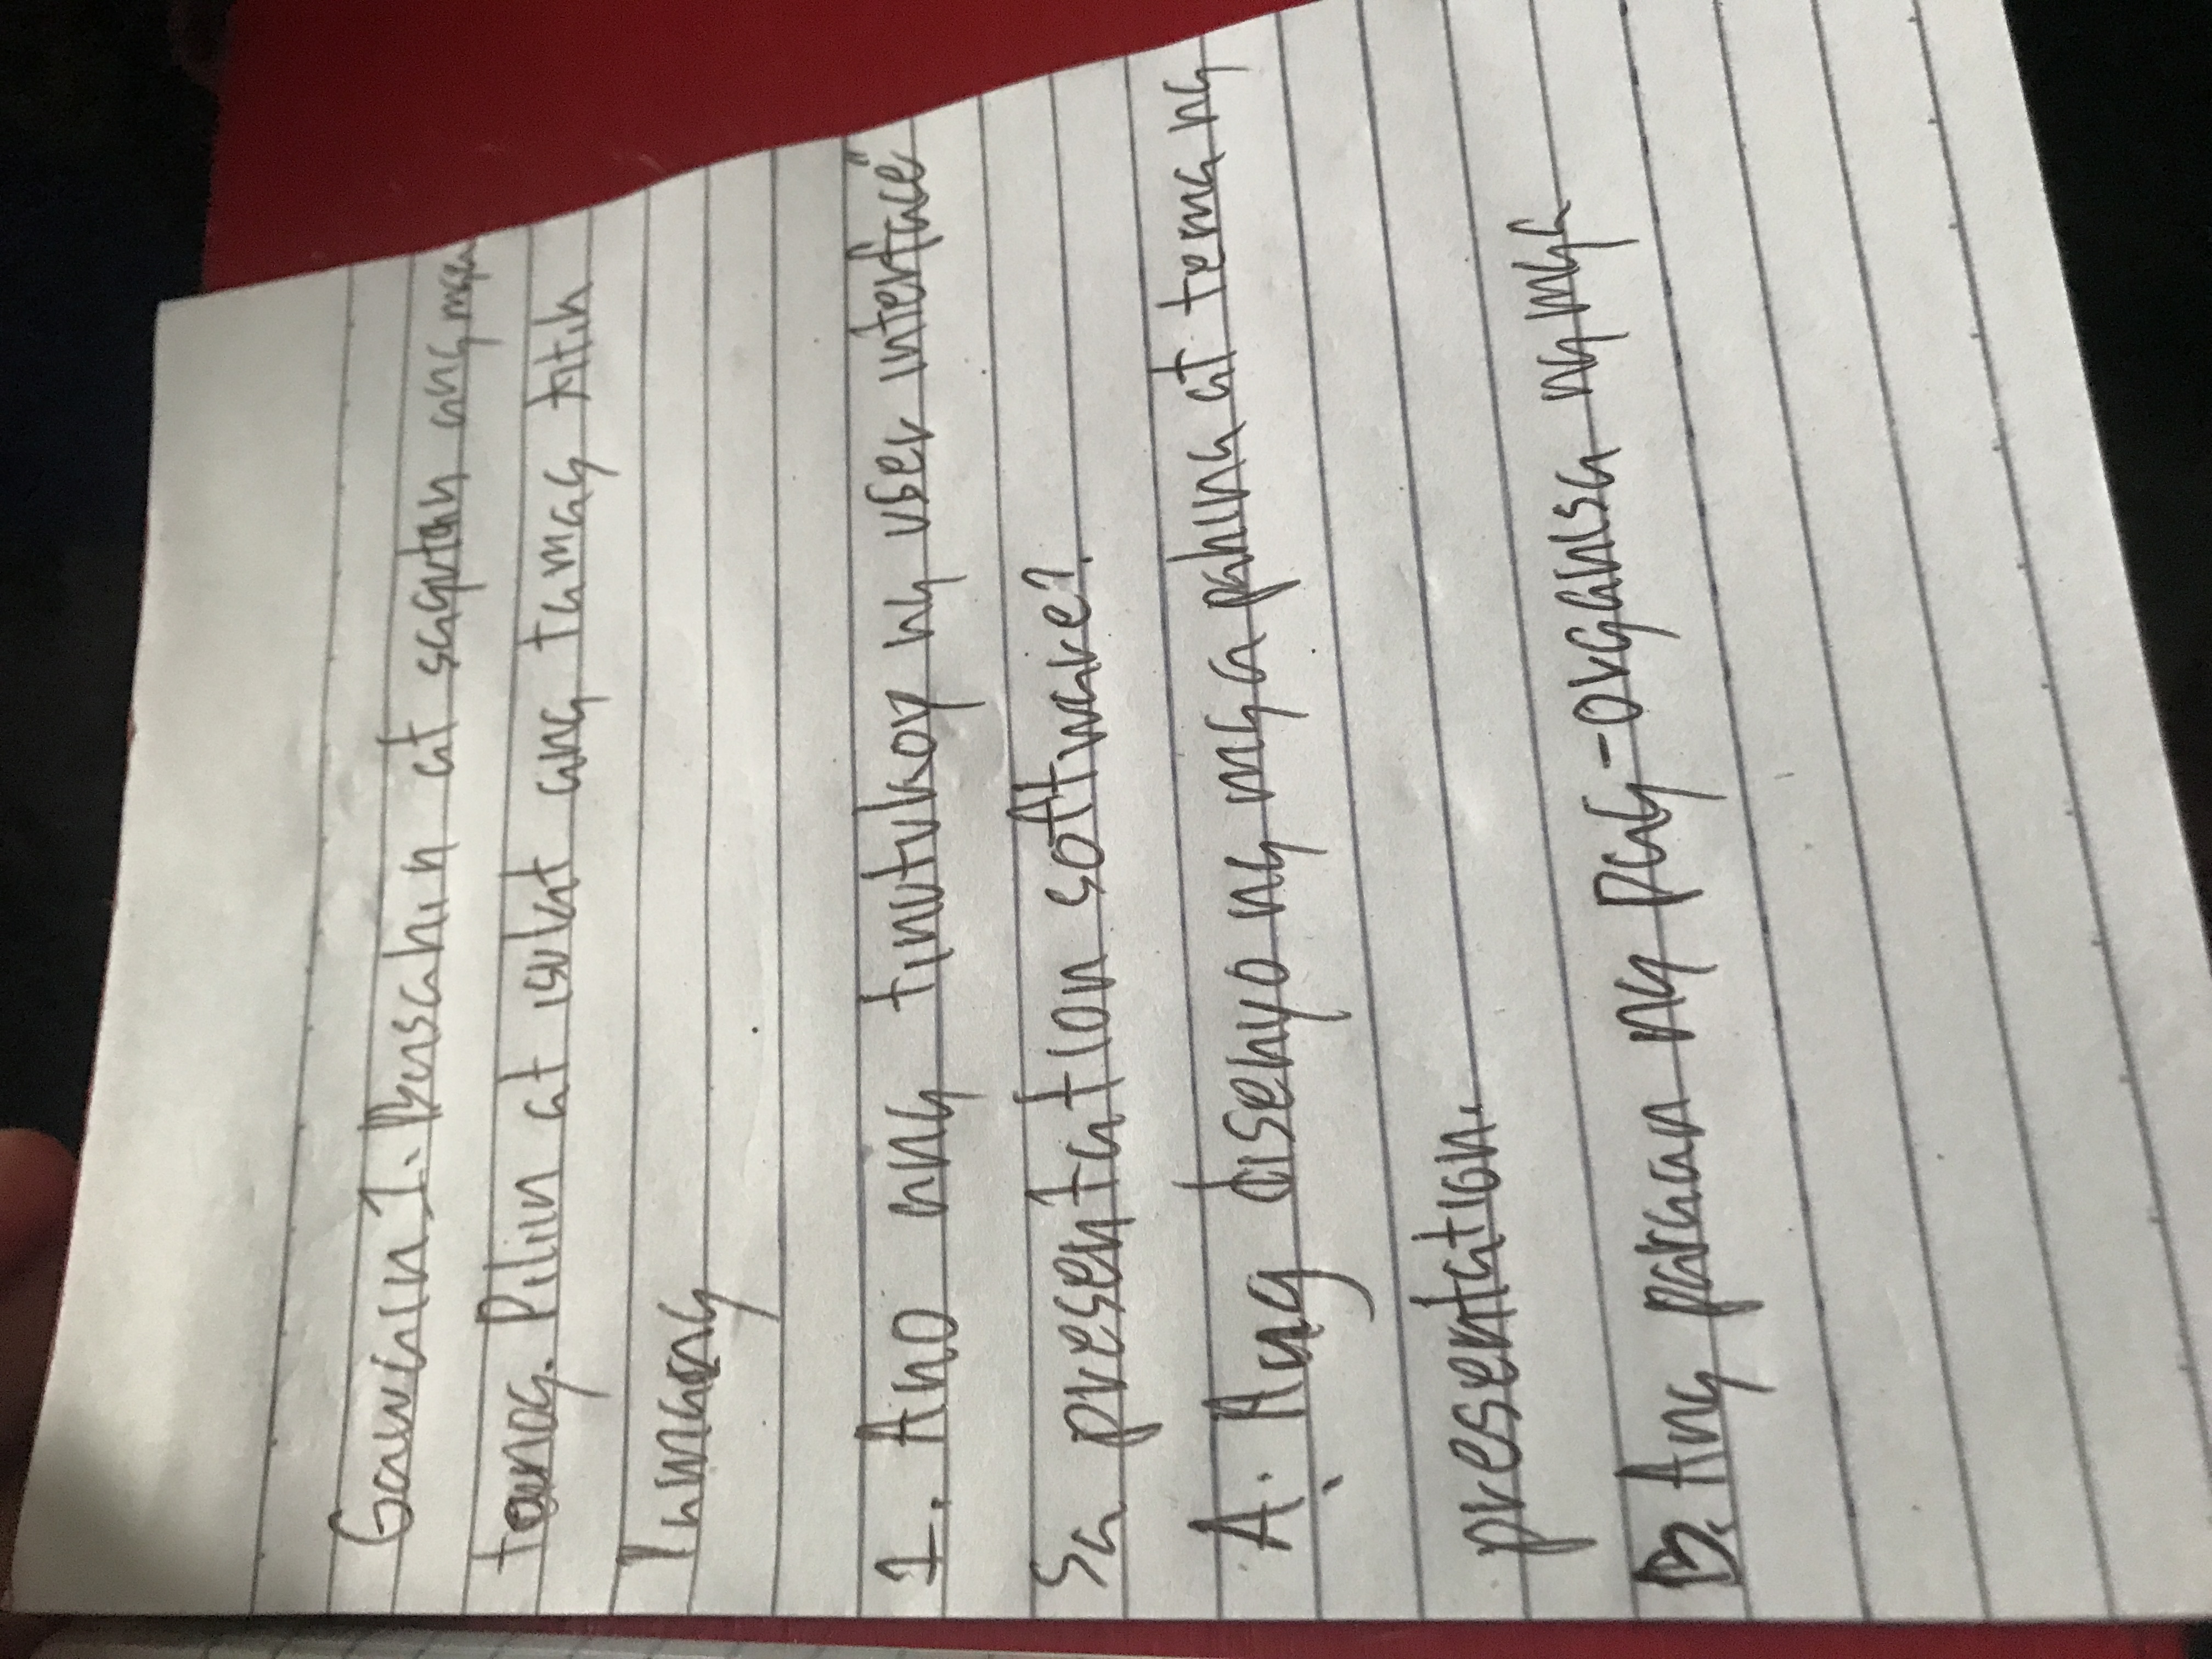 Gawain 1. Basahin at sagutan ang mga
tanog. Piliin at isulat ang tamag titik
lamang
1. Ano ang tinutukoy ng user interface"
sa presentation software?
A. Ang disenyo ng mga pahina at tema ng
presentation.
B. Ang paraan ng pag-organisa ng mga